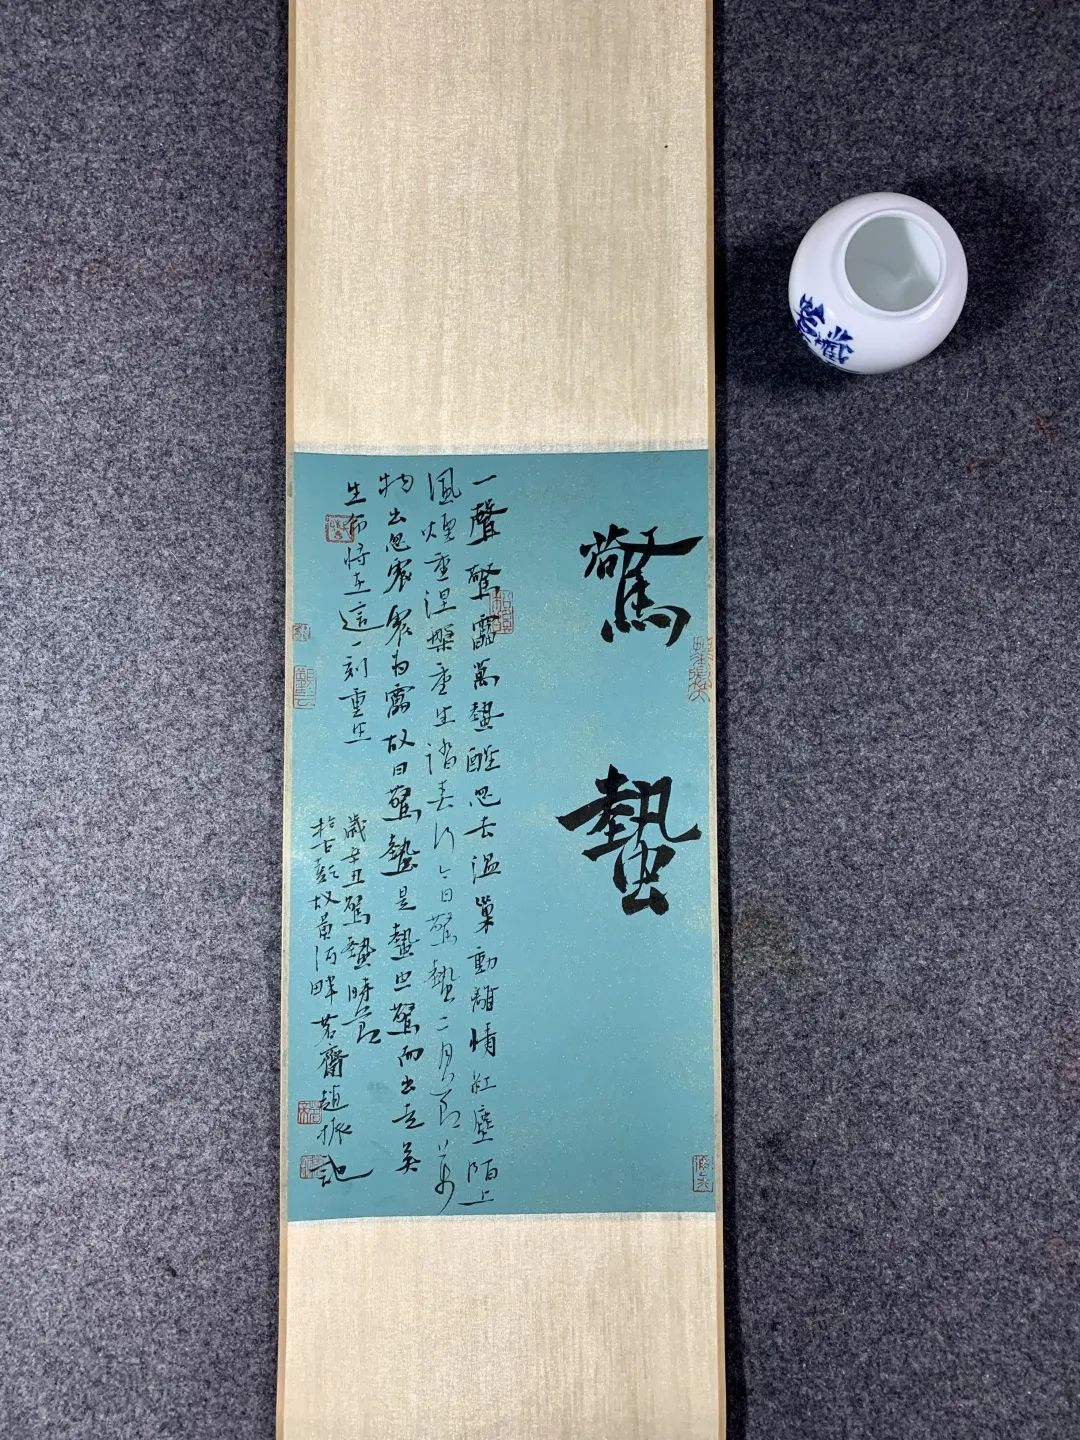 驚蟄
一聲驚雷萬蟄醒忽去溫巢動離情紅塵陌上
風煙重涅槃重生踏春行今日驚蟄二月節萬
物出乎震震為雷故曰驚蟄是蟄虫驚而出走矣
生命將在這一刻重生
歲辛丑驚蟄時節
於古彭故黃河畔若齋趙振記